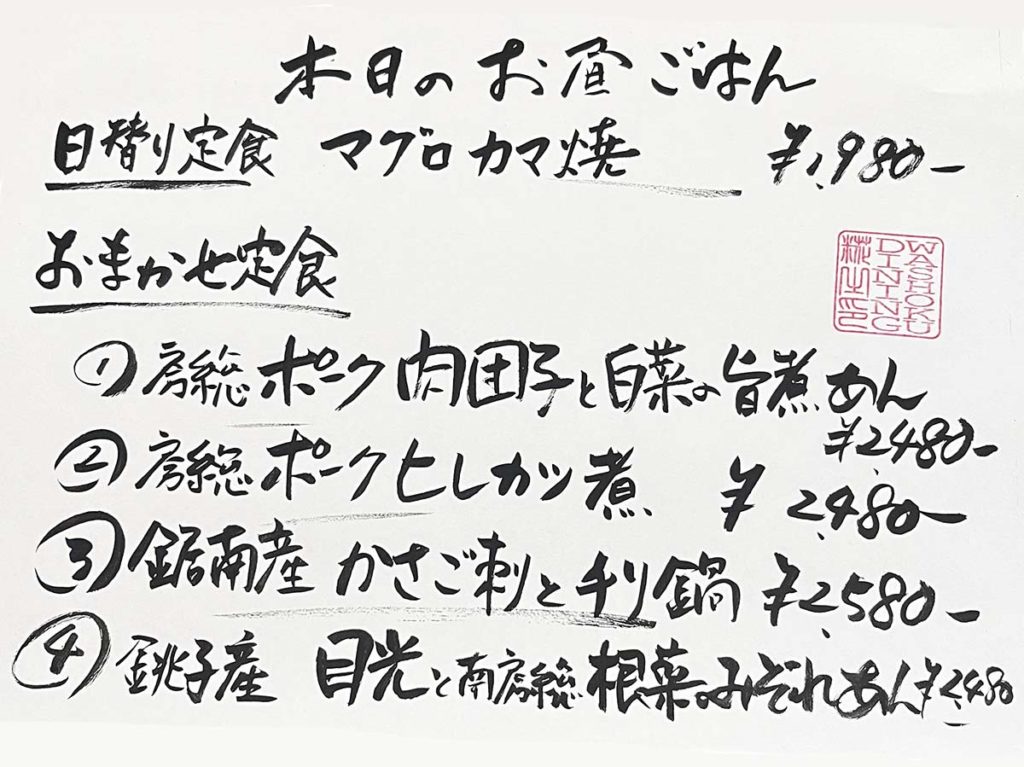 本日のお昼ごはん
日替り定食 マグロカマ焼 ¥1,980-
おまかせ定食
① 房総ポーク肉団子と白菜の旨煮あん
¥2,480-
② 房総ポークヒレカツ煮 ¥2,480-
③ 鋸南産 かさご刺とチリ鍋 ¥2,580-
④ 銚子産 目光と南房総根菜のみぞれあん ¥2,480
WASHOKU
DINING